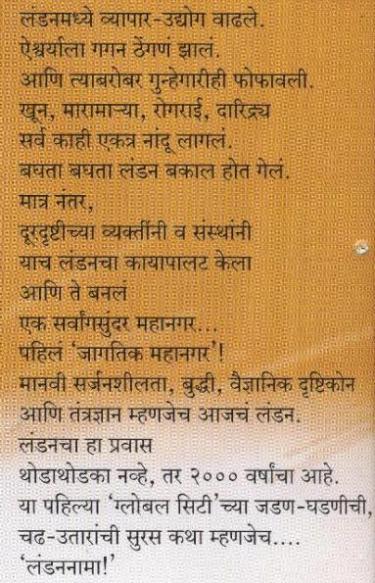 लंडनमध्ये व्यापार-उद्योग वाढले.
ऐश्वर्याला गगन ठेंगणं झालं.
आणि त्याबरोबर गुन्हेगारीही फोफावली.
खून, मारामाऱ्या, रोगराई, दारिद्र्य
सर्व काही एकत्र नांदू लागलं.
बघता बघता लंडन बकाल होत गेलं.
मात्र नंतर,
दूरदृष्टीच्या व्यक्तींनी व संस्थांनी
याच लंडनचा कायापालट केला
आणि ते बनलं
एक सर्वांगसुंदर महानगर...
पहिलं ‘जागतिक महानगर’!
मानवी सर्जनशीलता, बुद्धी, वैज्ञानिक दृष्टिकोन
आणि तंत्रज्ञान म्हणजेच आजचं लंडन.
लंडनचा हा प्रवास
थोडाथोडका नव्हे, तर २००० वर्षांचा आहे.
या पहिल्या ‘ग्लोबल सिटी’च्या जडण-घडणीची,
चढ-उतारांची सुरस कथा म्हणजेच....
‘लंडननामा!’